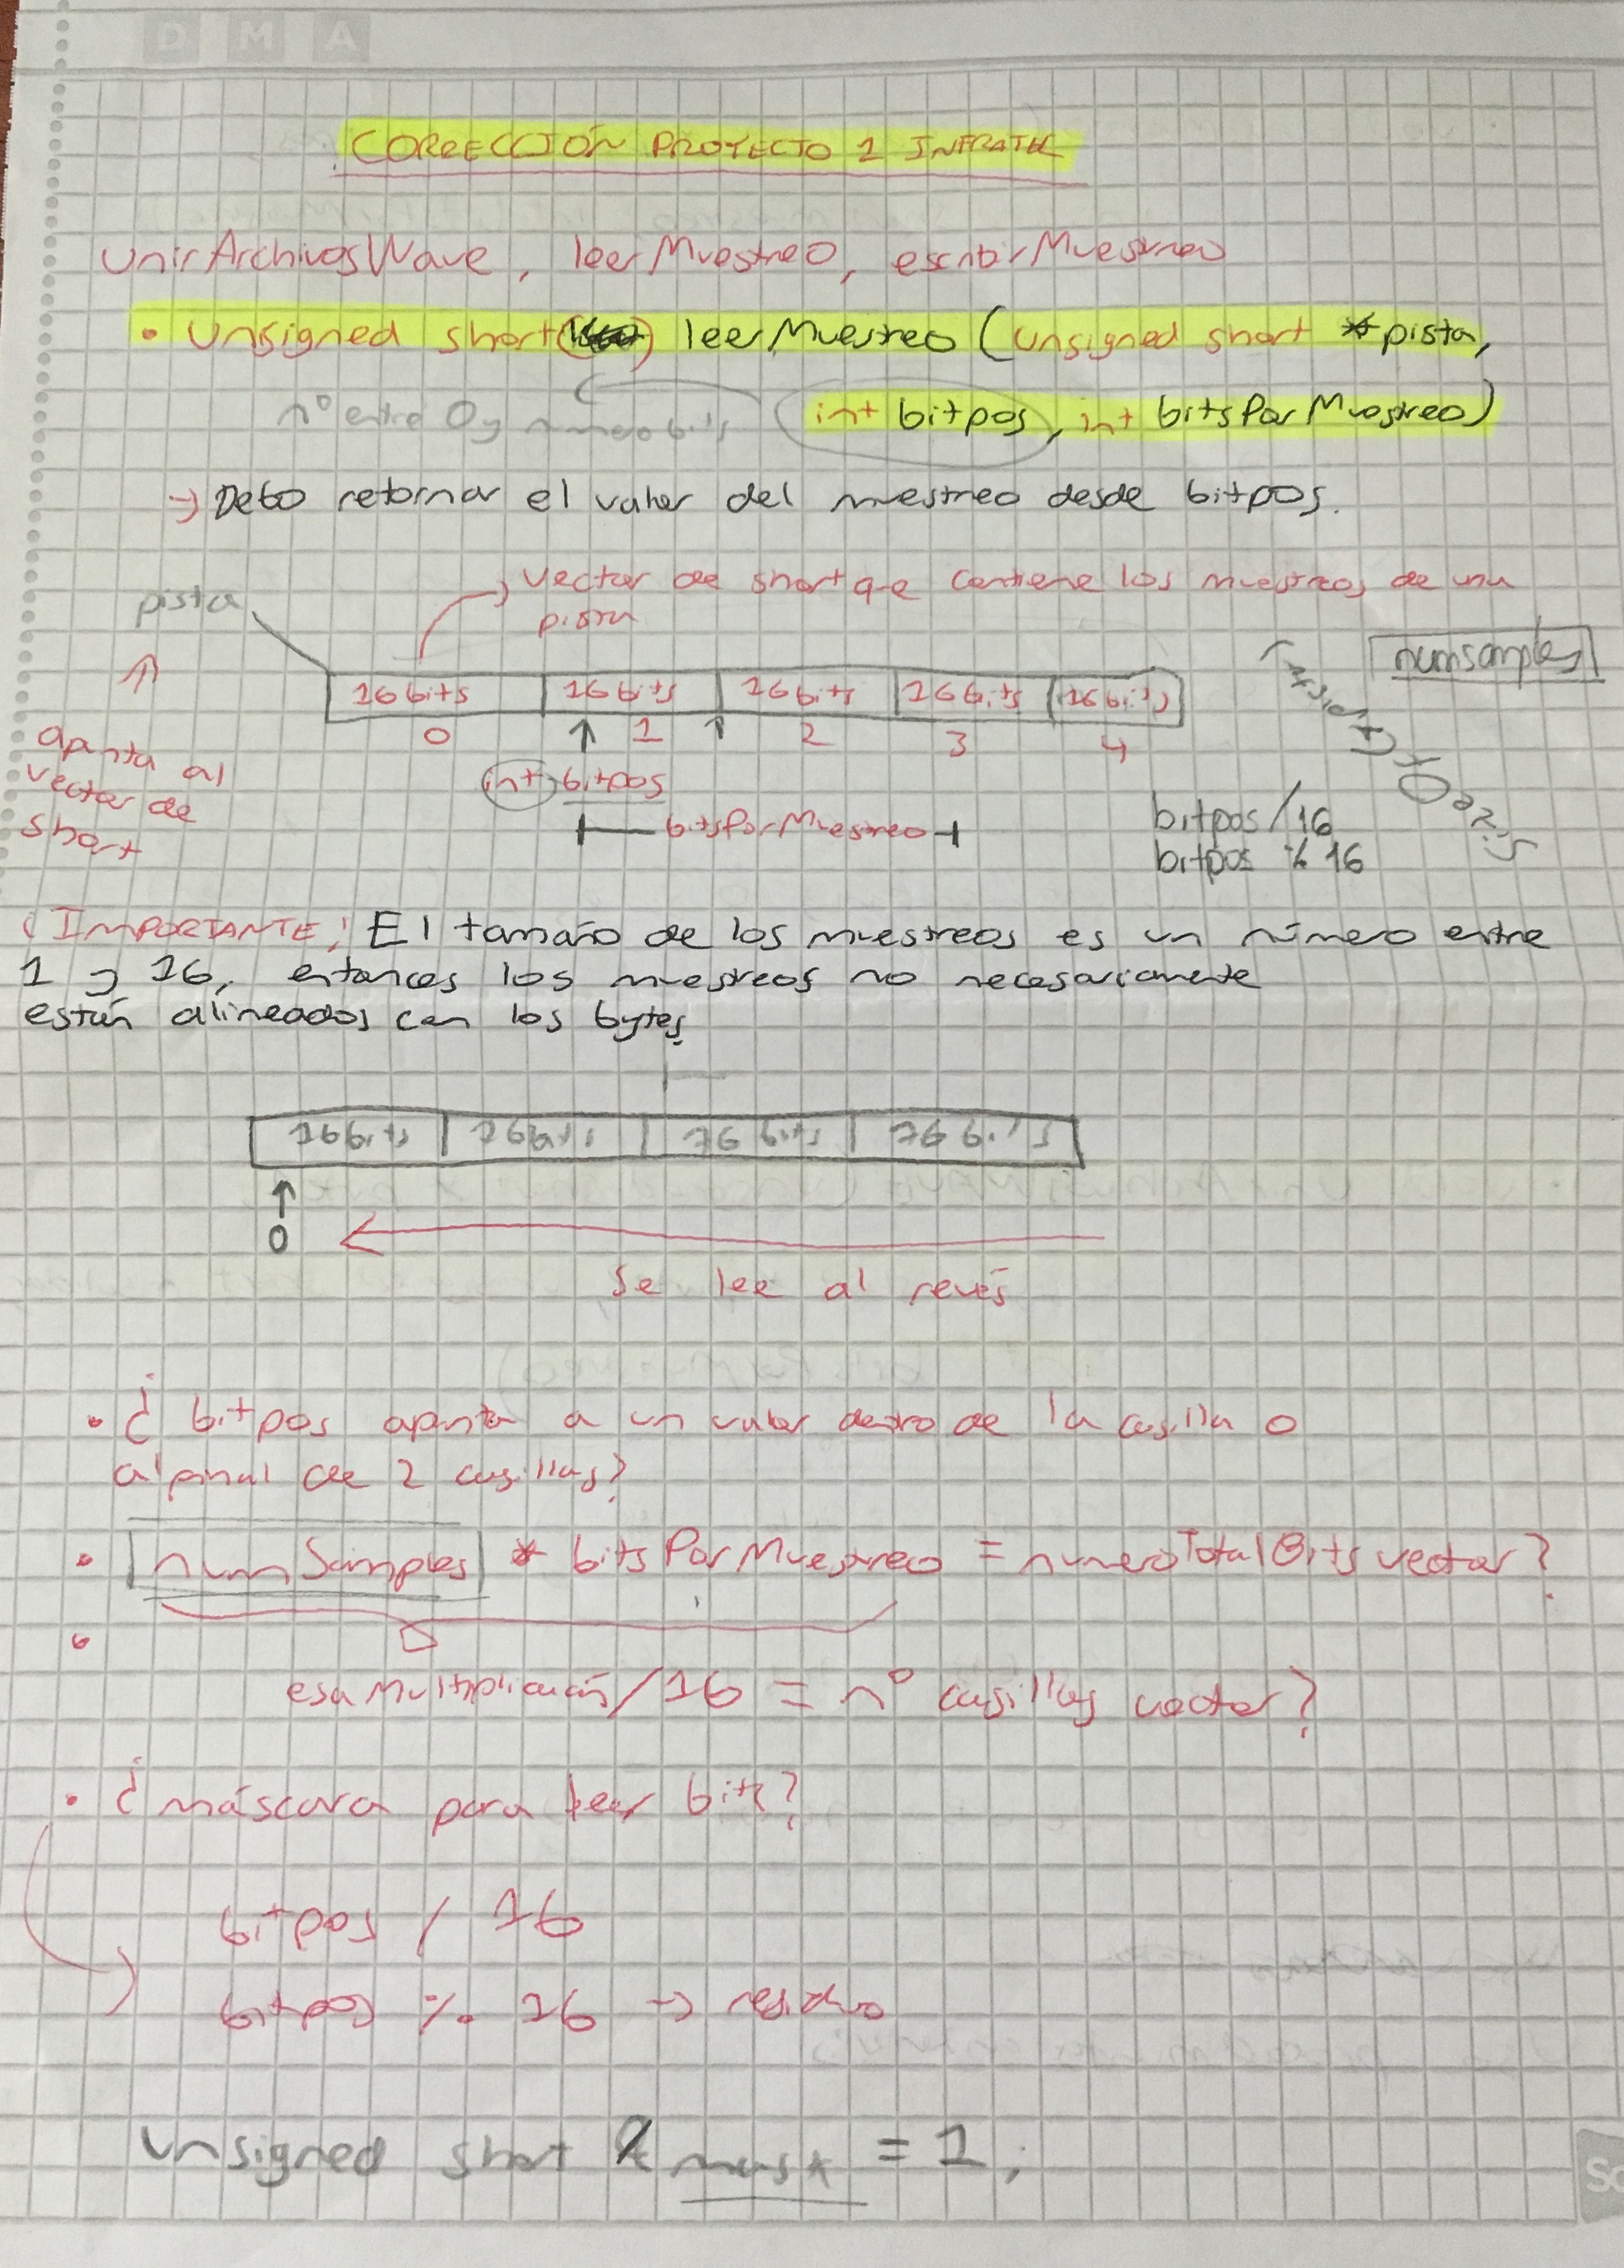 D M A
CORRECCIÓN PROYECTO 1 INFRATEC
UnirArchivosWave, leerMuestreo, escribirMuestreo
• Unsigned short leerMuestreo (unsigned short *pista,
int bitpos, int bitsPorMuestreo)
nº entre 0 y numero bits
→ Debo retornar el valor del muestreo desde bitpos.
pista
vector de short que contiene los muestreos de una
pista
numsamples
16 bits 16 bits 16 bits 16 bits 16 bits
0 1 2 3 4
apunta al
vector de
short
int bitpos
bitsPorMuestreo
bitpos/16
bitpos % 16
¡IMPORTANTE! El tamaño de los muestreos es un número entre
1 y 16, entonces los muestreos no necesariamente
están alineados con los bytes.
16 bits 16 bits 16 bits 16 bits
0
Se lee al revés
• ¿ bitpos apunta a un valor dentro de la casilla o
al final de 2 casillas?
• numSamples * bitsPorMuestreo = numeroTotalBits vector?
esa multiplicación/16 = nº casillas vector?
• ¿máscara para leer bit?
bitpos / 16
bitpos % 16 → residuo
unsigned short mask = 1;